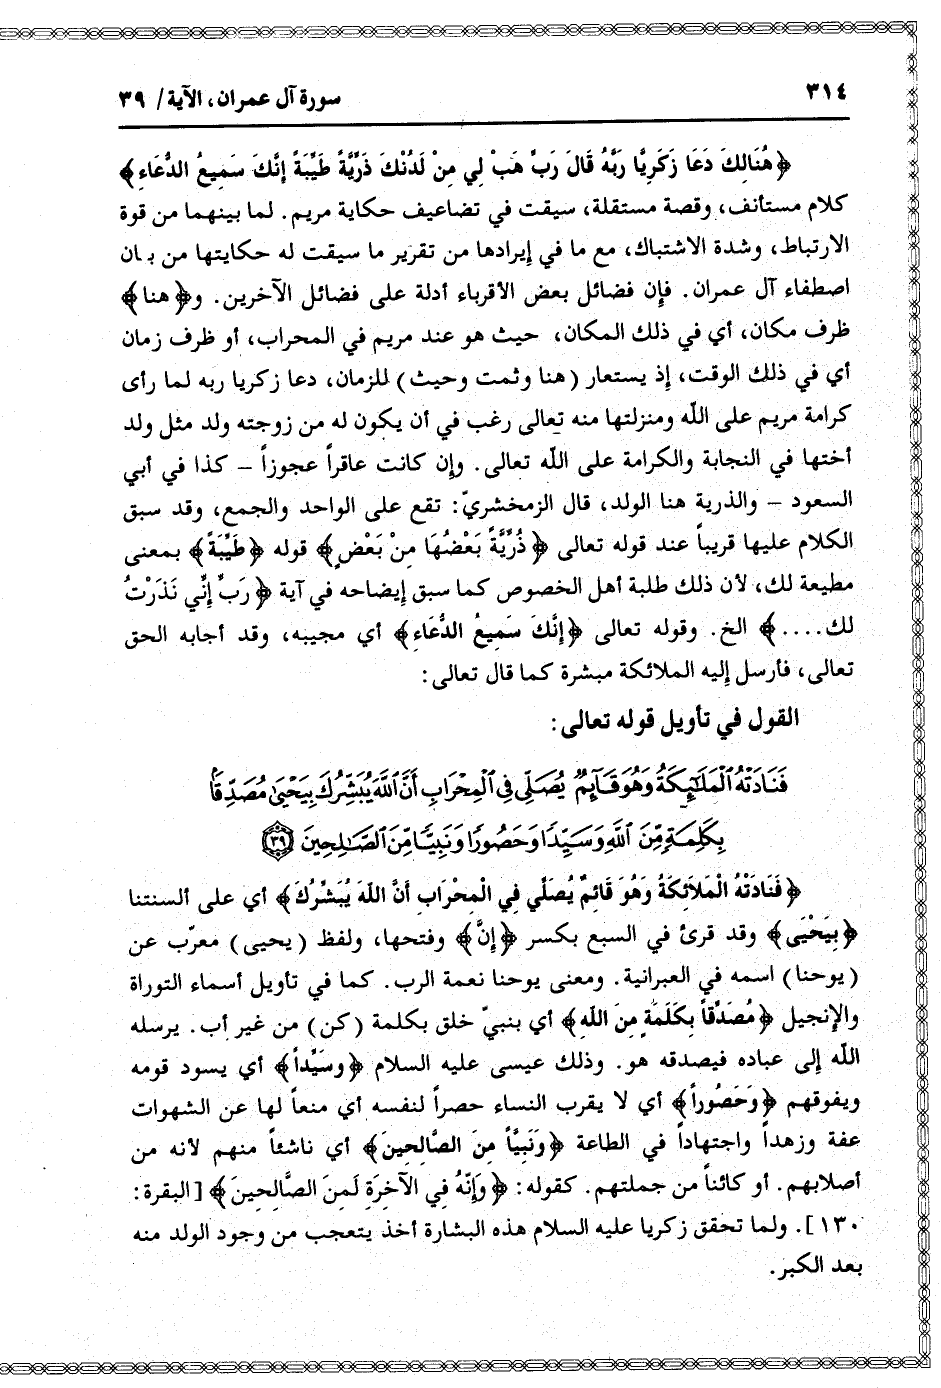 ٣١٤
سورة آل عمران، الآية/ ٣٩
﴿هُنَالِكَ دَعَا زَكَرِيَّا رَبَّهُ قَالَ رَبِّ هَبْ لِي مِنْ لَدُنْكَ ذُرِّيَّةً طَيِّبَةً إِنَّكَ سَمِيعُ الدُّعَاءِ﴾
كلام مستأنف، وقصة مستقلة، سيقت في تضاعيف حكاية مريم. لما بينهما من قوة
الارتباط، وشدة الاشتباك، مع ما في إيرادها من تقرير ما سيقت له حكايتها من بـان
اصطفاء آل عمران. فإن فضائل بعض الأقرباء أدلة على فضائل الآخرين. و﴿هنا﴾
ظرف مكان، أي في ذلك المكان، حيث هو عند مريم في المحراب، أو ظرف زمان
أي في ذلك الوقت، إذ يستعار (هنا وثمت وحيث) للزمان، دعا زكريا ربه لما رأى
كرامة مريم على اللّه ومنزلتها منه تعالى رغب في أن يكون له من زوجته ولد مثل ولد
أختها في النجابة والكرامة على اللّه تعالى. وإن كانت عاقراً عجوزاً – كذا في أبي
السعود – والذرية هنا الولد، قال الزمخشريّ: تقع على الواحد والجمع، وقد سبق
الكلام عليها قريباً عند قوله تعالى ﴿ذُرِّيَّةً بَعْضُهَا مِنْ بَعْضٍ﴾ قوله ﴿طَيِّبَةً﴾ بمعنى
مطيعة لك، لأن ذلك طلبة أهل الخصوص كما سبق إيضاحه في آية ﴿رَبِّ إِنِّي نَذَرْتُ
لك....﴾ الخ. وقوله تعالى ﴿إِنَّكَ سَمِيعُ الدُّعَاءِ﴾ أي مجيبه، وقد أجابه الحق
تعالى، فأرسل إليه الملائكة مبشرة كما قال تعالى:
القول في تأويل قوله تعالى:
فَنَادَتْهُ ٱلْمَلَٰٓئِكَةُ وَهُوَ قَآئِمٌ يُصَلِّى فِى ٱلْمِحْرَابِ أَنَّ ٱللَّهَ يُبَشِّرُكَ بِيَحْيَىٰ مُصَدِّقًۢا
بِكَلِمَةٍ مِّنَ ٱللَّهِ وَسَيِّدًا وَحَصُورًا وَنَبِيًّا مِّنَ ٱلصَّٰلِحِينَ ٣٩
﴿فَنَادَتْهُ الْمَلَائِكَةُ وَهُوَ قَائِمٌ يُصَلِّي فِي الْمِحْرَابِ أَنَّ اللّهَ يُبَشِّرُكَ﴾ أي على ألسنتنا
﴿بِيَحْيَى﴾ وقد قرئ في السبع بكسر ﴿إِنَّ﴾ وفتحها، ولفظ (يحيى) معرّب عن
(يوحنا) اسمه في العبرانية. ومعنى يوحنا نعمة الرب. كما في تأويل أسماء التوراة
والإنجيل ﴿مُصَدِّقاً بِكَلَمَةٍ مِنَ اللّهِ﴾ أي بنبيّ خلق بكلمة (كن) من غير أب. يرسله
اللّه إلى عباده فيصدقه هو. وذلك عيسى عليه السلام ﴿وسَيِّداً﴾ أي يسود قومه
ويفوقهم ﴿وَحَصُوراً﴾ أي لا يقرب النساء حصراً لنفسه أي منعاً لها عن الشهوات
عفة وزهداً واجتهاداً في الطاعة ﴿وَنَبِيًّا مِنَ الصَّالِحينَ﴾ أي ناشئاً منهم لأنه من
أصلابهم. أو كائناً من جملتهم. كقوله: ﴿وَإِنَّهُ فِي الآخِرَةِ لَمِنَ الصَّالِحِينَ﴾ [البقرة:
١٣٠]. ولما تحقق زكريا عليه السلام هذه البشارة أخذ يتعجب من وجود الولد منه
بعد الكبر.